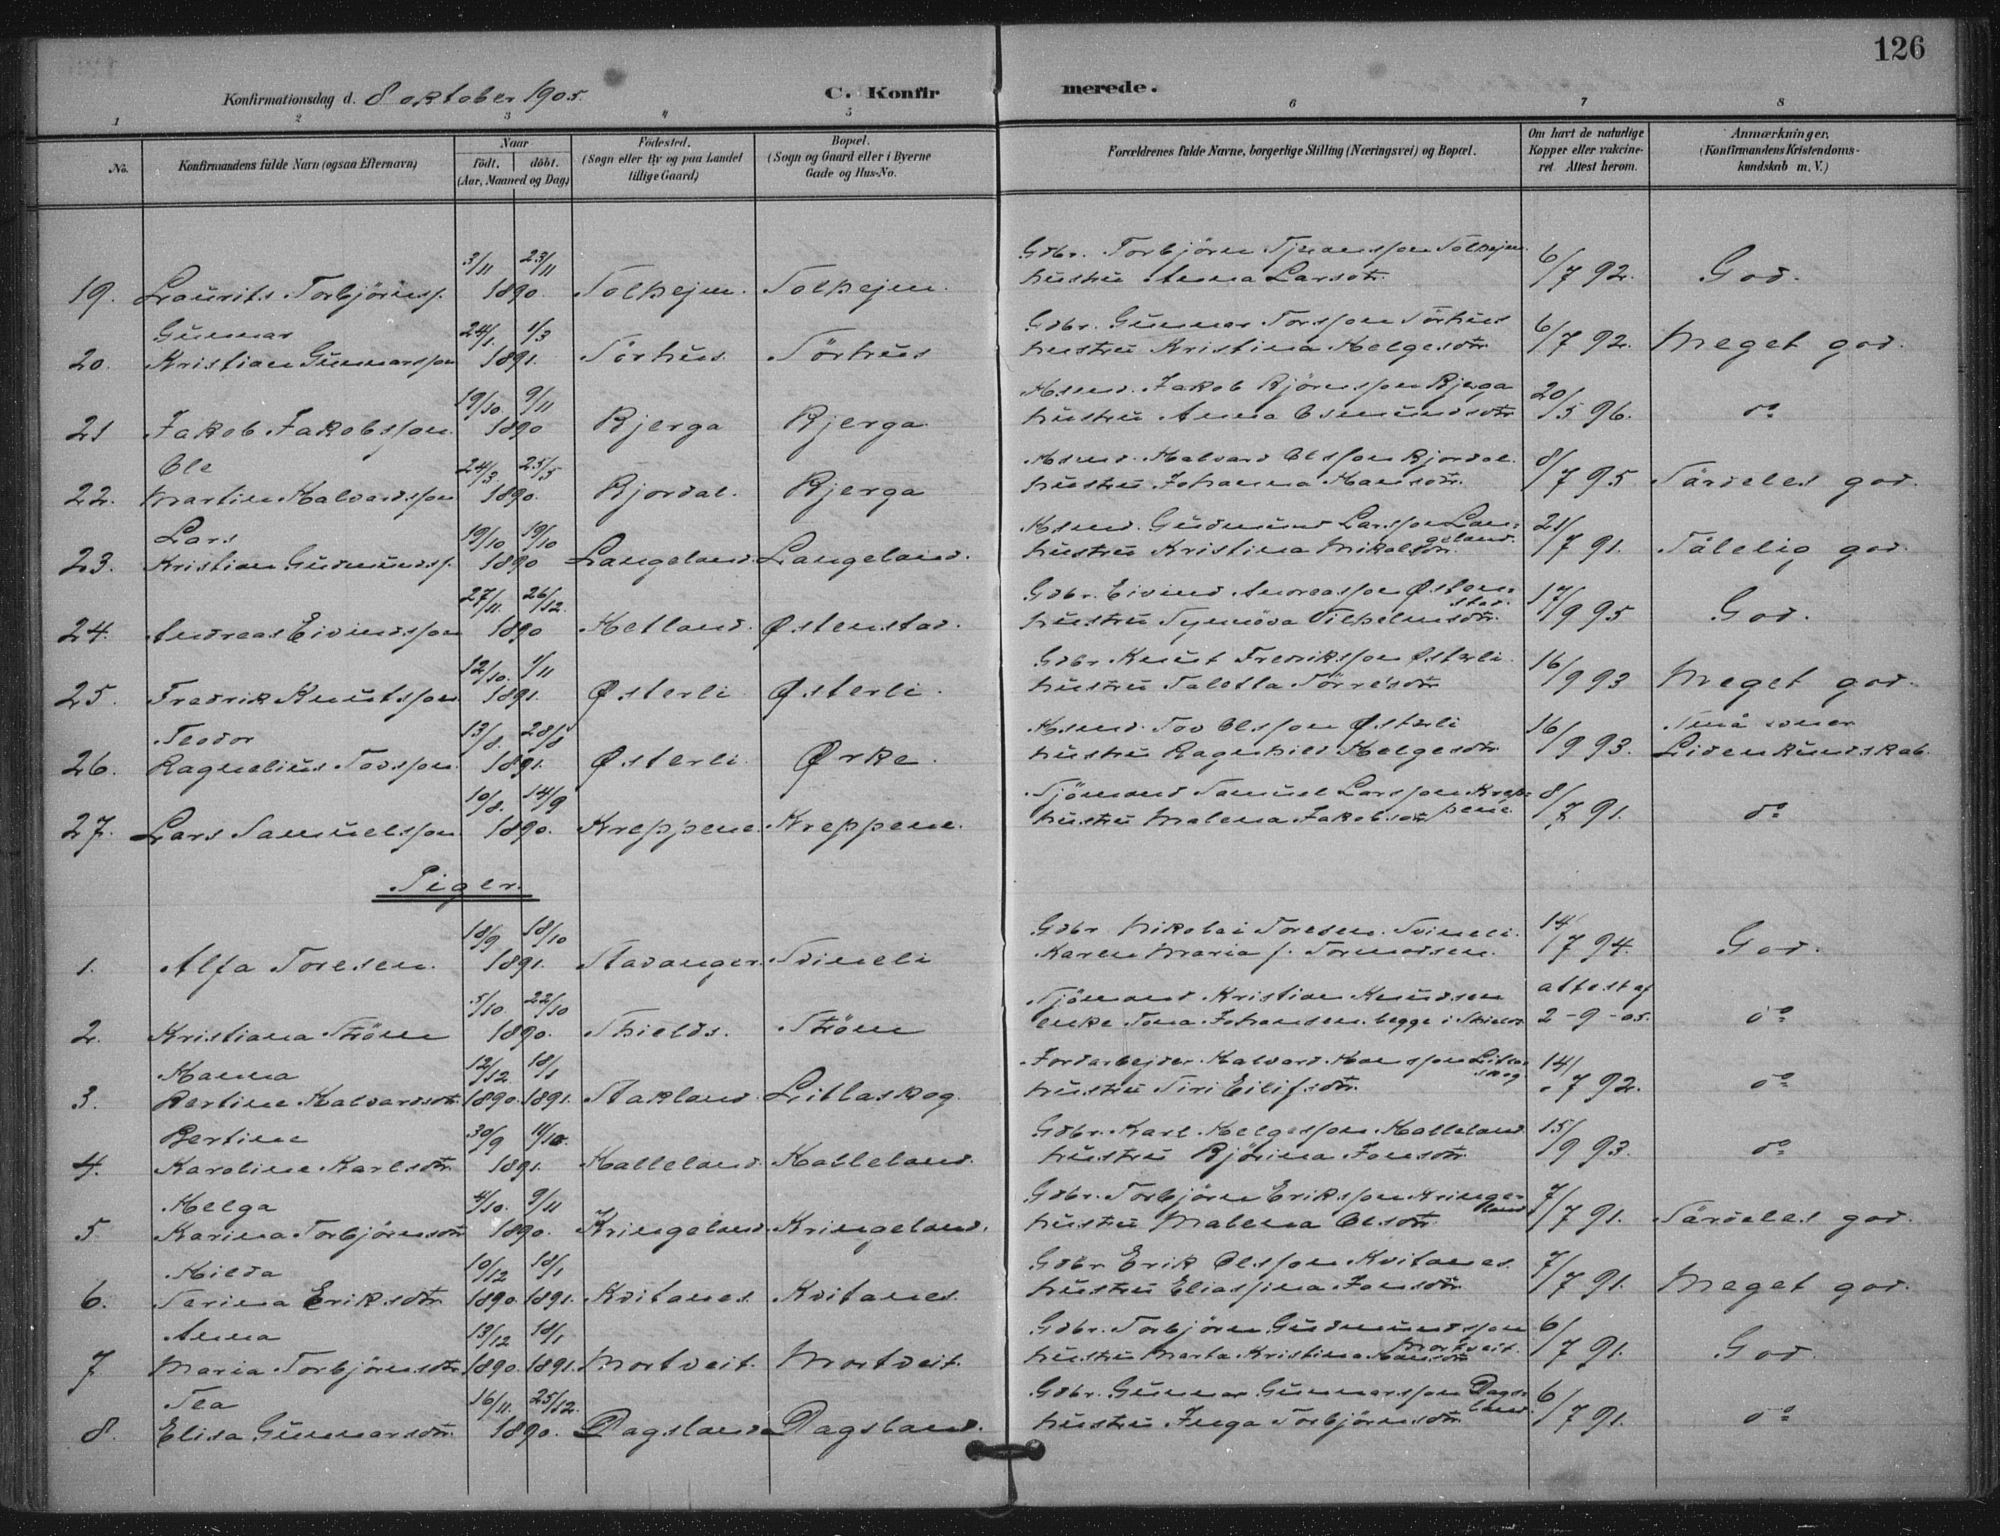 126
Konfirmationsdag d. 8 oktober 1905.
C. Konfir merede.
1 2 3 4 5 6 7 8
No. Konfirmandens fulde Navn (ogsaa Efternavn) Naar født. døbt. (Aar, Maaned og Dag) Fødested. (Sogn eller By og paa Landet tillige Gaard) Bopæl. (Sogn og Gaard eller i Byerne Gade og Hus-No. Forældrenes fulde Navne, borgerlige Stilling (Næringsvei) og Bopæl. Om havt de naturlige Kopper eller vakcineret. Attest herom. Anmærkninger. (Konfirmandens Kristendomskundskab m. V.)
3/11 23/11 Gdbr. Torbjörn Solheim 6/7 92.
19. Laurits Torbjörnss. 1890. Solhejm. Solhejm. hustru Anna Larsdtr. God.
Gunnar 24/1. 1/3 Gdbr. Gunnar Torsson Törhus 6/7 92.
20. Kristian Gunnarsson 1891. Törhus. Törhus hustru Kristina Helgesdtr. Meget god.
19/10. 9/11 Hsmd. Jakob Bjørnsson Bjerga 20/5 96.
21 Jakob Jakobsson. 1890 Bjerga Bjerga hustru Anna Osmundsdtr. do
Ole 24/3 25/5 Hsmd. Halvard Olsson Bjordal. 8/7 95
22. Martin Halvardsson 1890. Bjordal. Bjerga hustru Johanna Hansdtr. Särdeles god.
Lars 19/10 19/10 Hsmd. Gudmund Larsson Langeland. 21/7 91.
23. Kristian Gudmundss. 1890 Langeland. Langeland. hustru Kristina Mikalsdtr. Tålelig god.
27/11. 26/12. Gdbr. Eivind Andreasson Østenstad. 17/9 95
24. Andreas Eivindsson 1890 Hetland. Østenstad. hustru Synnöva Vilhelmsdtr. God.
12/10. 1/11 Gdbr. Knut Fredriksson Østerli. 16/9 93
25. Fredrik Knutsson 1891. Østerli. Østerli. hustru Saletta Törresdtr. Meget god.
Teodor 13/8. 28/8 Hsmd. Tov Olsson Østerli 16/9 93. Små evner
26. Ragnelius Tovsson. 1891. Østerli. Ørke. hustru Ragnhild Helgesdtr. Liden kundskab.
10/8. 14/9 Sjömand Samuel Larsson Kreppene 8/7 91.
27. Lars Samuelsson 1890. Kreppene. Kreppene. hustru Malena Jakobsdtr. do
Piger.
18/9 18/10 Gdbr. Nikolai Toresen. Svineli. 14/7 94.
1. Alfa Toresen. 1891. Stavanger. Svineli Karen Maria f. Tormodsen. God.
5/10 22/10 Sjömand Kristian Knudsen attest af
2. Kristiana Ström 1890. Shields. Ström enke Tona Johansen. begge i Shields 2-9-05. do
Hanna 12/12 18/1 Jordarbejder Halvard Hansson Litlaskog 14/7 92.
3. Bertine Halvardsdtr. 1890. 1891. Stakland. Litlaskog. hustru Siri Eilifsdtr. do
Bertine 30/9 11/10. Gdbr. Karl Helgesson Halleland 15/9 93.
4. Karoline Karlsdtr. 1891. Halleland. Halleland. hustru Bjørina Jonsdtr. do
Helga 4/10. 9/11 Gdbr. Torbjörn Eriksson Kringeland 7/7 91.
5. Karina Torbjörnsdtr. 1890. Kringeland. Kringeland. hustru Malena Olsdtr. Särdeles god.
Hilda 10/12 18/1 Gdbr. Erik Olsson Kvitanes. 7/7 91.
6. Serina Eriksdtr. 1890. 1891. Kvitanes. Kvitanes. hustru Eliassina Jonsdtr. Meget god.
Anna 13/12 18/1 Gdbr. Torbjörn Gudmundsson Mortveit. 6/7 91.
7 Maria Torbjörnsdtr. 1890. 1891. Mortveit. Mortveit. hustru Marta Kristina Hansdtr God.
Tea 16/11. 25/12. Gdbr. Gunnar Gunnarsson Dagsland. 6/7 91.
8. Elisa Gunnarsdtr. 1890. Dagsland Dagsland. hustru Inga Torbjörnsdtr. do